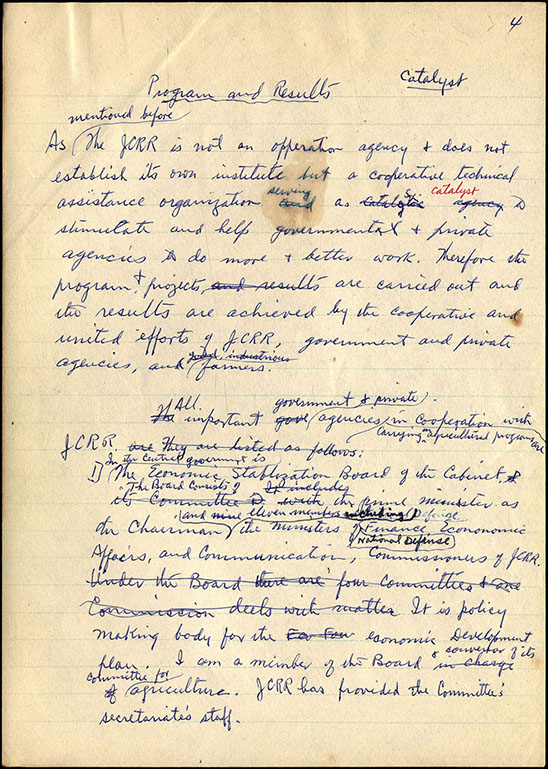 4
Catalyst
Program and Results
mentioned before
As The JCRR is not an opperation agency & does not
establish its own institute but a cooperative technical
serving catalyst
assistance organization and as catalytic agency to
stimulate and help governmental & private
agencies to do more & better work. Therefore the
program & projects, and results are carried out and
the results are achieved by the cooperative and
united efforts of JCRR, government and private
industrious
agencies, and farmers.
All government & private
The important gove agencies in cooperation with
carrying agricultural program are
JCRR are They are listed as follows:
In the central government is
1) The Economic Stablization Board of the Cabinet,
"The Board Consists of It includes
its Committee with the prime minister as
and nine eleven members including Defense
the Chairman the ministers of Finance, Econonomic
National Defense
Affairs, and Communication, Commissioners of JCRR.
Under the Board there are four Committees & one
Commission deels with matter It is policy
making body for the economic Development
plan. I am a member of the Board in charge
& convenor of its
committee for
of agriculture. JCRR has provided the Committee's
secretariate's staff.